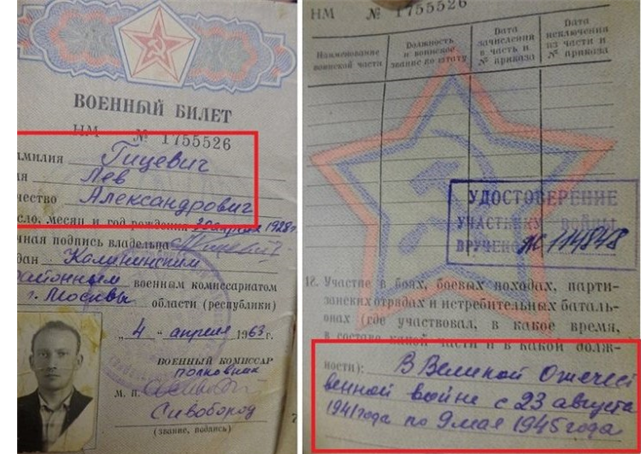 ВОЕННЫЙ БИЛЕТ
НМ № 1755526
амилия Гицевич
мя Лев
чество Александрович
исло, месяц и год рождения 20 апреля 1928 г.
чная подпись владельца
дан Калининским
районным военным комиссариатом
г. Москвы области (республики)
„4„ апреля 1963 г.
ВОЕННЫЙ КОМИССАР
полковник
М. П.
Сивобород
(звание, подпись)
НМ № 1755526
Наименование воинской части
Должность и воинское звание по штату
Дата зачисления в часть и № приказа
Дата исключения из части и № приказа
УДОСТОВЕРЕНИЕ
УЧАСТНИКУ ВОЙНЫ
ВРУЧЕНО Ж 114848
12. Участие в боях, боевых походах, парти-
занских отрядах и истребительных баталь-
онах (где участвовал, в какое время,
в составе какой части и в какой долж-
ности): В Великой Отечест
венной войне с 23 августа
1941 года по 9 мая 1945 года